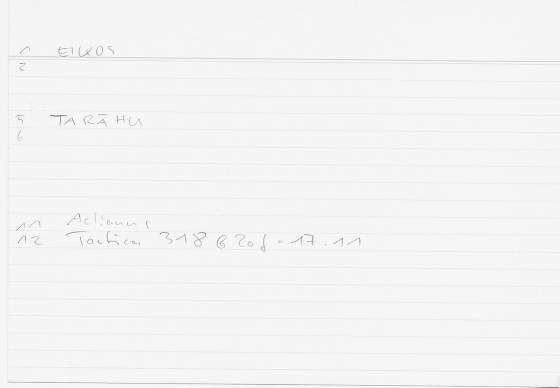 1 EIKOS
2
5 TARĀHU
6
11 Aelianus
12 Tactica 318 B 20 f. 17.11